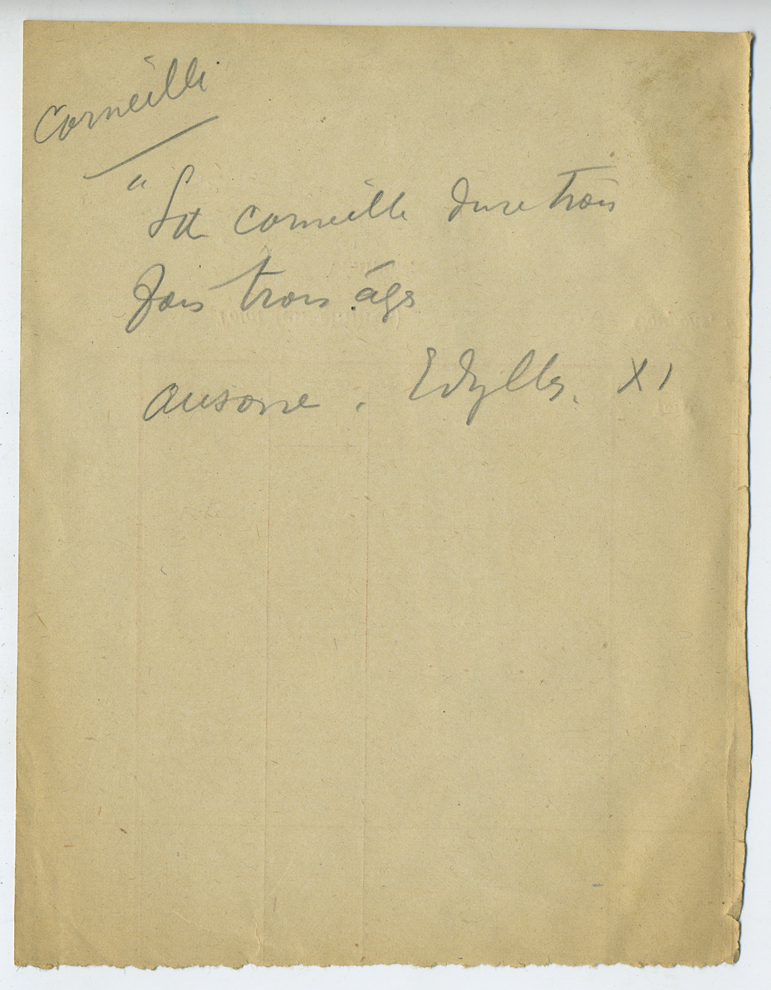 Corneille
" La corneille dure trois
fois trois âges
Ausone. Idylles. XI